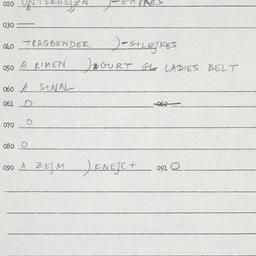 020
030
040 TRAGBENDER )-STLEJKES
050 A RIMEN ) GURT LADIES BELT
060 A SNAL
061 O 062
070 O
080 O
090 A ZEJM ) KNEJCT 091 O